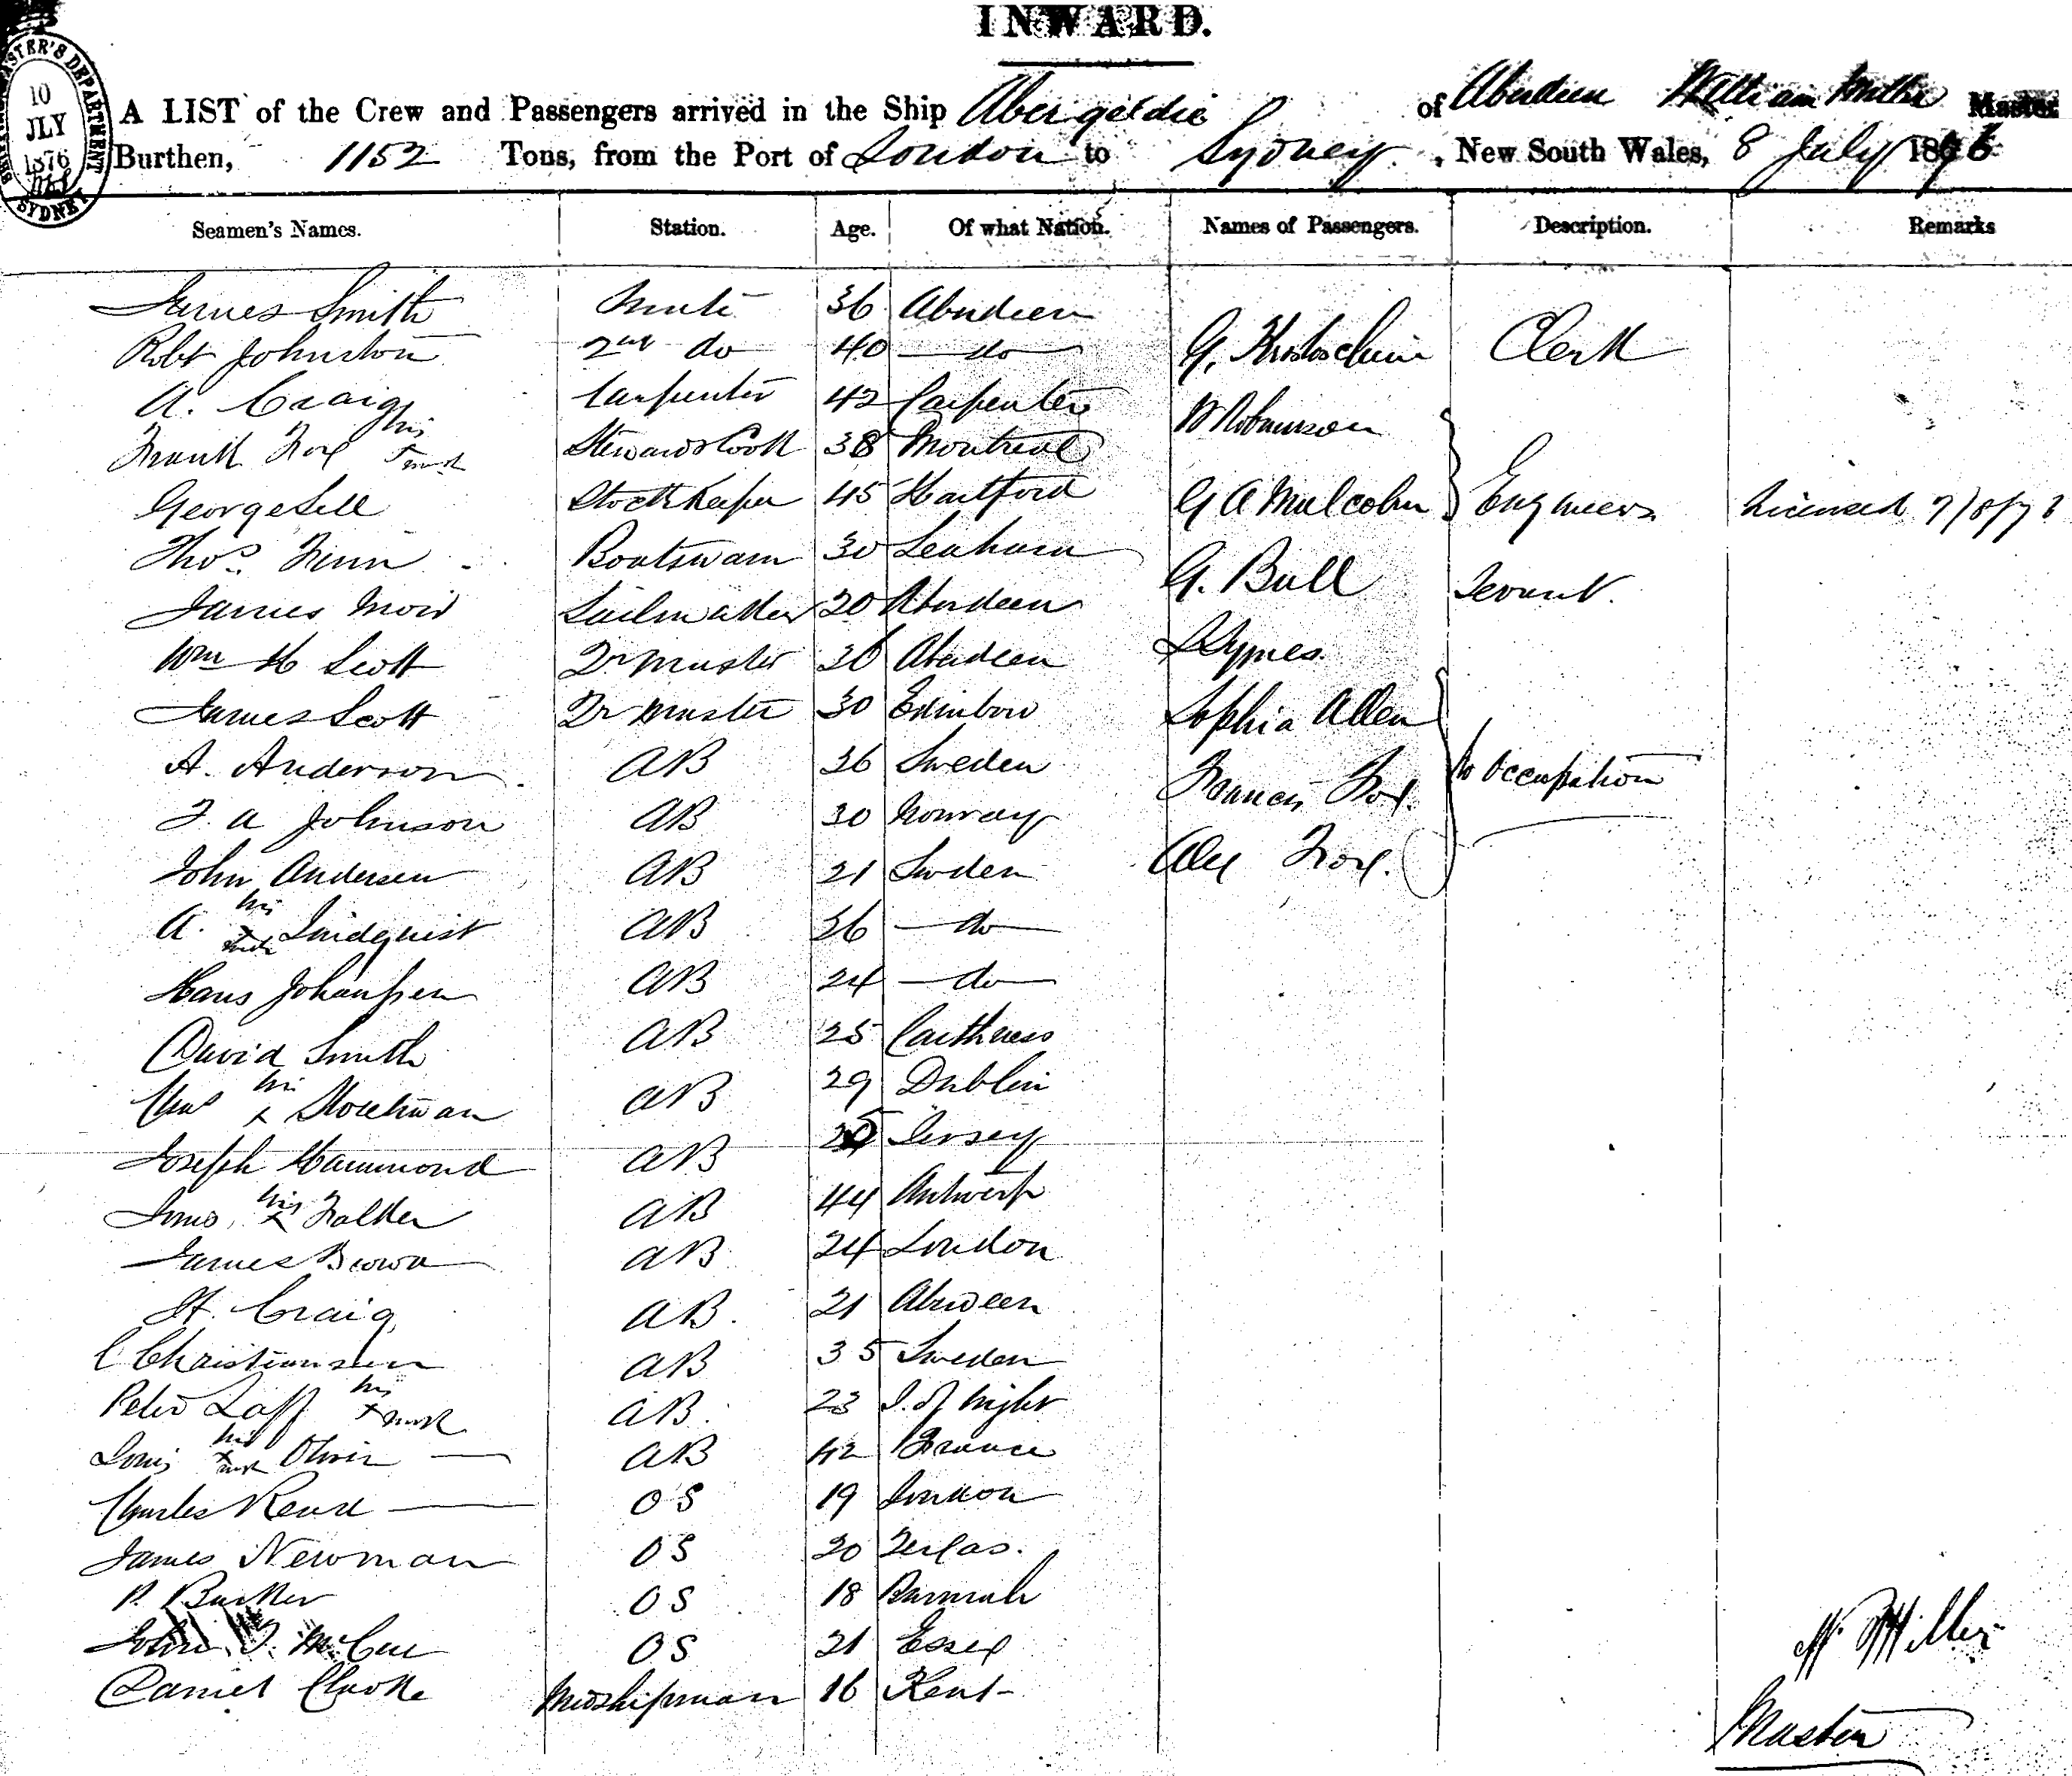 INWARD.
10
JLY
1876
SYDNEY
A LIST of the Crew and Passengers arrived in the Ship Abergeldie of Aberdeen William Master
Burthen, 1152 Tons, from the Port of London to Sydney, New South Wales, 8 July 1876
Seamen's Names. Station. Age. Of what Nation. Names of Passengers. Description. Remarks
James Smith Mate 36 Aberdeen
Robt Johnston 2nd do 40 do G. Clerk
A. Craig Carpenter 42 Carpenter W Robinson
Frank Fox his x mark Steward & Cook 38 Montreal
George Sell Storekeeper 45 Hartford G A Malcolm Engineers Licensed
Thos. Finn Boatswain 30 Seaham G. Bull Servant.
James Moir Sailmaker 20 Aberdeen
Wm H Scott Qr Master 26 Aberdeen Symes.
James Scott Qr Master 30 Edinboro Sophia Allen
A. Anderson AB 36 Sweden No Occupation
F. A Johnson AB 30 Norway Frances Fox.
John Andersen AB 21 Sweden Alex Fox.
A. his x mark Lindquist AB 26 do
Hans Johanssen AB 24 do
David Smith AB 25 Caithness
Chas his x Stockman AB 29 Dublin
Joseph Hammond AB Jersey
his x AB 44 Antwerp
James Brown AB 24 London
H. Craig AB. 21 Aberdeen
C Christiansen AB 35 Sweden
Peter his x mark AB. 23 I. of Wight
Louis his x mark Oliver AB 42 France
Charles Read OS 19 London
James Newman OS 20
P. Barker OS 18 Burmah
John OS 21 Essex
Daniel Clarke Midshipman 16 Kent
W. Miller
Master